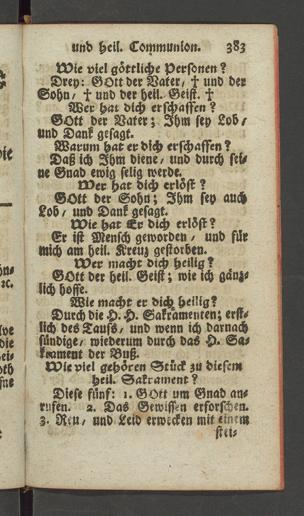 und heil. Communion. 383
Wie viel göttliche Personen?
Drey: GOtt der Vater, † und der
Sohn, † und der heil. Geist. †
Wer hat dich erschaffen?
GOtt der Vater; Ihm sey Lob,
und Dank gesagt.
Warum hat er dich erschaffen?
Daß ich Ihm diene, und durch sei-
ne Gnad ewig selig werde.
Wer hat dich erlöst?
GOtt der Sohn; Ihm sey auch
Lob, und Dank gesagt.
Wie hat Er dich erlöst?
Er ist Mensch geworden, und für
mich am heil. Kreuz gestorben.
Wer macht dich heilig?
GOtt der heil. Geist; wie ich gänz-
lich hoffe.
Wie macht er dich heilig?
Durch die H. H. Sakramenten; erst-
lich des Taufs, und wenn ich darnach
sündige, wiederum durch das H. Sa-
krament der Buß.
Wie viel gehören Stück zu diesem
heil. Sakrament?
Diese fünf: 1. GOtt um Gnad an-
rufen. 2. Das Gewissen erforschen.
3. Reu, und Leid erwecken mit einem
stei-